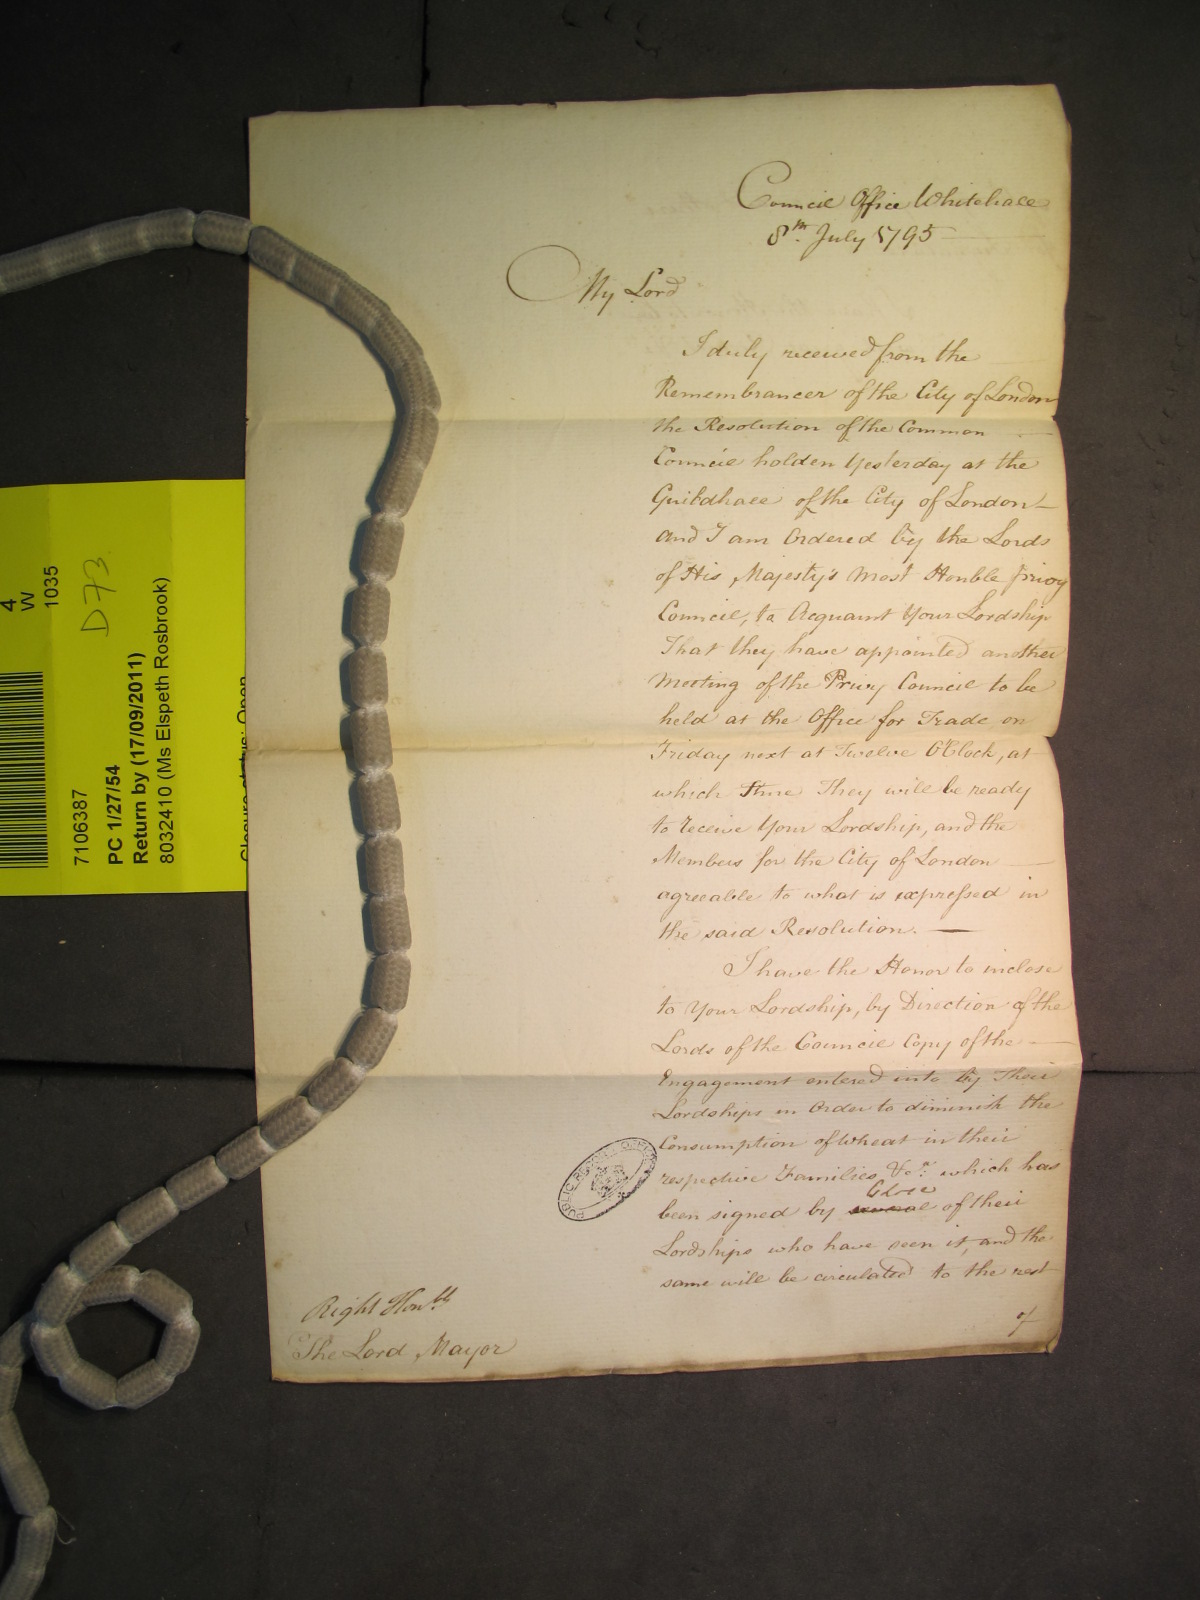 Council Office Whitehall
8th July 1795
My Lord
I duly received from the
Remembrancer of the City of London
the Resolution of the Common
Council holden Yesterday at the
Guildhall of the City of London
and I am Ordered by the Lords
of His Majesty's Most Honble Privy
Council, to Acquaint Your Lordship
That they have appointed another
Meeting of the Privy Council to be
held at the Office for Trade on
Friday next at Twelve O'Clock, at
which Time They will be ready
to receive Your Lordship, and the
Members for the City of London
agreeable to what is expressed in
the said Resolution.
I have the Honor to inclose
to Your Lordship, by Direction of the
Lords of the Council Copy of the
Engagement entered into by Their
Lordships in Order to diminish the
Consumption of Wheat in their
respective Families &ca. which has
been signed by several of their
Lordships who have seen it, and the
same will be circulated to the rest
of
Right Honble
The Lord Mayor
PUBLIC RECORD OFFICE
4
W
1035
D73
7106387
PC 1/27/54
Return by (17/09/2011)
8032410 (Ms Elspeth Rosbrook)
Closure status: Open